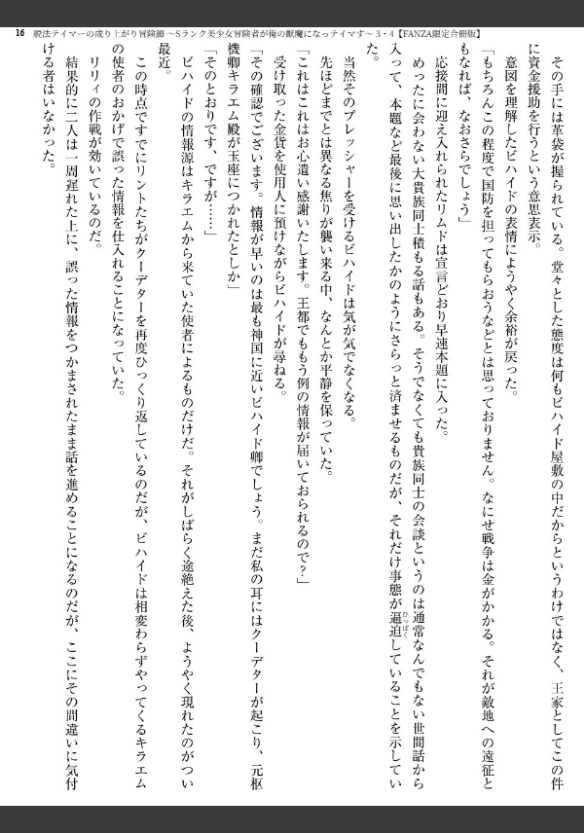 16 脱法テイマーの成り上がり冒険譚 ～Sランク美少女冒険者が俺の獣魔になっテイマす～ 3・4【FANZA限定合冊版】
その手には革袋が握られている。堂々とした態度は何もビハイド屋敷の中だからというわけではなく、王家としてこの件
に資金援助を行うという意思表示。
意図を理解したビハイドの表情にようやく余裕が戻った。
「もちろんこの程度で国防を担ってもらおうなどとは思っておりません。なにせ戦争は金がかかる。それが敵地への遠征と
もなれば、なおさらでしょう」
応接間に迎え入れられたリムドは宣言どおり早速本題に入った。
めったに会わない大貴族同士積もる話もある。そうでなくても貴族同士の会談というのは通常なんでもない世間話から
入って、本題など最後に思い出したかのようにさらっと済ませるものだが、それだけ事態が逼迫していることを示してい
た。
当然そのプレッシャーを受けるビハイドは気が気でなくなる。
先ほどまでとは異なる焦りが襲い来る中、なんとか平静を保っていた。
「これはこれはお心遣い感謝いたします。王都でももう例の情報が届いておられるので？」
受け取った金貨を使用人に預けながらビハイドが尋ねる。
「その確認でございます。情報が早いのは最も神国に近いビハイド卿でしょう。まだ私の耳にはクーデターが起こり、元枢
機卿キラエム殿が玉座につかれたとしか」
「そのとおりです、ですが……」
ビハイドの情報源はキラエムから来ていた使者によるものだけだ。それがしばらく途絶えた後、ようやく現れたのがつい
最近。
この時点ですでにリントたちがクーデターを再度ひっくり返しているのだが、ビハイドは相変わらずやってくるキラエム
の使者のおかげで誤った情報を仕入れることになっていた。
リリィの作戦が効いているのだ。
結果的に二人は一周遅れた上に、誤った情報をつかまされたまま話を進めることになるのだが、ここにその間違いに気付
ける者はいなかった。
ひっぱく